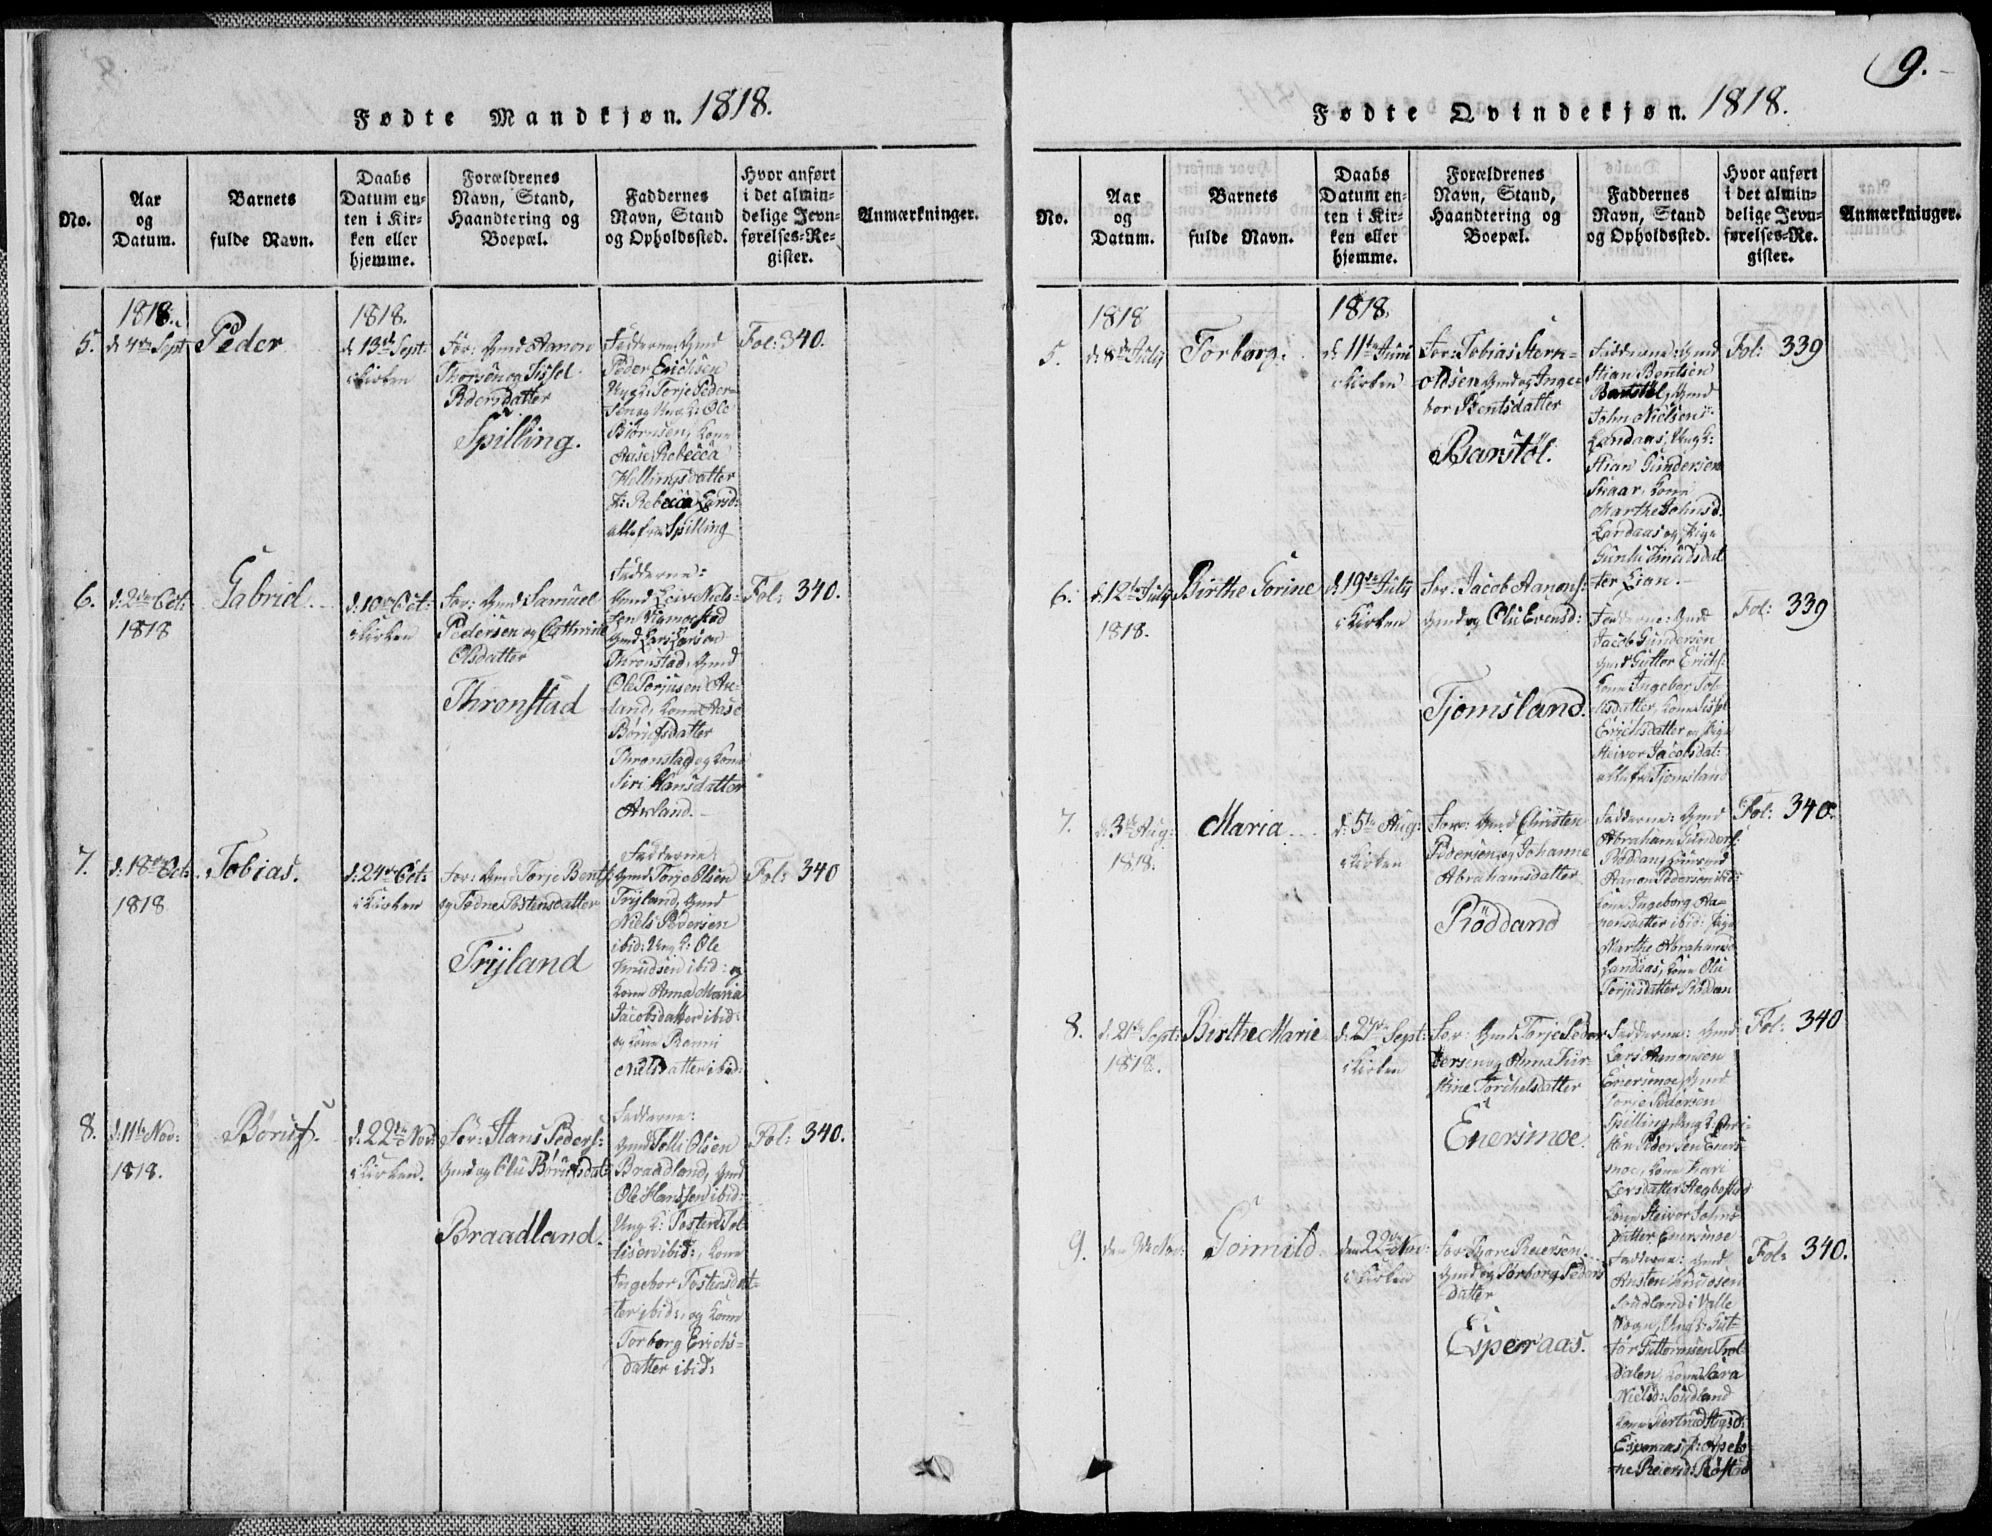 9.
Fødte Mandkjøn. 1818.
No.
Aar og Datum.
Barnets fulde Navn.
Daabs Datum enten i Kirken eller hjemme.
Forældrenes Navn, Stand, Haandtering og Boepæl.
Faddernes Navn, Stand og Opholdssted.
Hvor anført i det almindelige Jevnførelses-Register.
Anmærkninger.
5.
1818.
d: 4de Sept
Peder
1818.
d 13de Sept:
i Kirken
For: Gmd Aanon
Thorsen og Sissel
Pedersdatter
Spilling.
Fadderne, Gmd
Peder Erichsen
Ung K: Torje Peder-
sen og Ung K: Ole
Biørnsen, Kone
Aase Rebecca
Hellingsdatter
P: Rebecca
alle fra Spilling
Fol: 340.
6.
d: 2de Oct:
1818
Gabriel.
d: 10de Oct:
i Kirken
For: Gmd Samuel
Pedersen og Cathrine
Olsdatter
Thronstad
Fadderne:
Gmd Leiv Niels-
sen
Gmd Lars Larsen
Thronstad, Gmd
Ole Torjusen Aa-
land, Kone Aase
Børufsdatter
Thronstad og Kone
Siri Hansdatter
Fol: 340.
7.
d: 18de Oct:
1818
Tobias.
d: 24de Oct:
i Kirken
For: Gmd Torje Bents:
og Tødne Tostensdatter
Trijland
Fadderne:
Gmd Torje Olsen
Trijland, Gmd
Niels Pedersen
ibid: Ung K: Ole
Knudsen ibid: og
Kone Anna Maria
Jacobsdatter ibid:
og Kone Ranni
Nielsdatter ibid:
Fol: 340
8.
d: 11te Nov:
1818.
Børuf.
d: 22de Nov:
i Kirken.
For: Hans Peders:
Gmd og Olu Børufsdat:
Braadland.
Fadderne:
Gmd Tolli Olsen
Braadland, Gmd
Ole Hanssen ibid:
Ung K: Tosten Tol-
lisen ibid:, Kone
Ingebor Tostensdat-
ter ibid:, og Kone
Torborg Erichs-
datter ibid:
Fol: 340.
Fødte Qvindekjøn. 1818.
No.
Aar og Datum.
Barnets fulde Navn.
Daabs Datum enten i Kirken eller hjemme.
Forældrenes Navn, Stand, Haandtering og Boepæl.
Faddernes Navn, Stand og Opholdssted.
Hvor anført i det almindelige Jevnførelses-Register.
Anmærkninger.
5.
1818
Torborg.
1818.
d: 11te Juni
i Kirken
For: Tobias Stern-
oldsen Gmd og Inge-
bor Bentsdatter
Barstøl.
Fadderne: Gmd
Stian Bentsen
Barstøl, Gmd
John Nielsen
Landaas, Ung K:
Stian Gundersen
Skaar, Kone
Marthe Johnsd:
Landaas og Pige
Gunlu Knudsdat
ter Lian.
Fol: 339
6.
d: 12te July
1818.
Birthe Torine
d: 19de July
i Kirken
For: Jacob Aanons:
Gmd og Olu Evensd:
Tjomsland.
Fadderne: Gmd
Jacob Gundersen
Gmd Guttor Erichs:
Kone Ingebor Tol-
lisdatter, Kone Sissel
Erichsdatter og Pige
Steivor Jacobsdat:
alle fr Tjomsland
Fol: 339
7.
d: 3de Aug:
1818.
Maria
d: 5te Aug:
i Kirken
For: Gmd Christen
Pedersen og Johanne
Abrahamsdatter
Röddand
Fadderne: Gmd
Abraham Gunders:
Röddan
Aanon Pedersen ibid:
Kone Ingeborg Aa-
nensdatter ibid: Pige
Marthe Abrahamsd
Landaas, Kone Olu
Torjusdatter Röddan
Fol: 340.
8.
d: 21de Sept:
1818.
Birthe Marie
d: 27de Sept:
i Kirken
For: Gmd Torje Peder
dersen og Anna Kir-
stine Torchelsdatter
Enersmoe.
Fadderne: Gmd
Lars Aanonsen
Enersmoe, Gmd
Torje Pedersen
Spilling, Ung K: Chri-
sten Pedersen Eners-
moe, Kone Kari
Larsdatter Hægbostad
Kone Steivor Johns
datter Enersmoe
Fol: 340
9.
Goinnild
den 22de Nov:
i Kirken
For: Thore Reiersen
Gmd og Torborg Peders
datter
Esperaas.
Fadderne: Gmd
Austen Knudsen
Soudland i Valle
Sogn, Ung K: Gut-
tor Guttormsen Trol-
dalen, Kone Sara
Nielsd: Soudland
Kone Giertrud
Esperaas, P:
ne Reiersd:
Fol: 340.